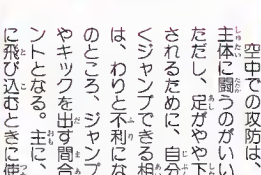 空中での攻防は、
主体に闘うのがいい
ただし、足がやや下
されるために、自分
くジャンプできる相
は、わりと不利にな
のところ、ジャンプ
やキックを出す間合
ントとなる。主に、
に飛び込むときに使